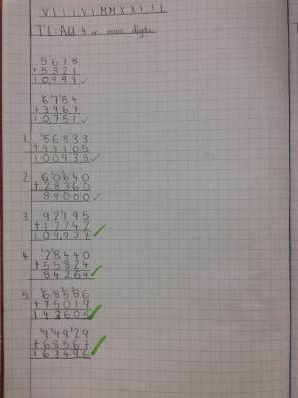 VI III VI MMXXIII
T1: Add 4 or more digits
5678
+5321
10999
6784
+3967
10,751
1. 56833
+44105
100938
2. 60640
+28360
89000
3. 92195
+17742
109937
4. 28440
+55824
84264
5. 68586
+75019
143605
94929
+68567
163496